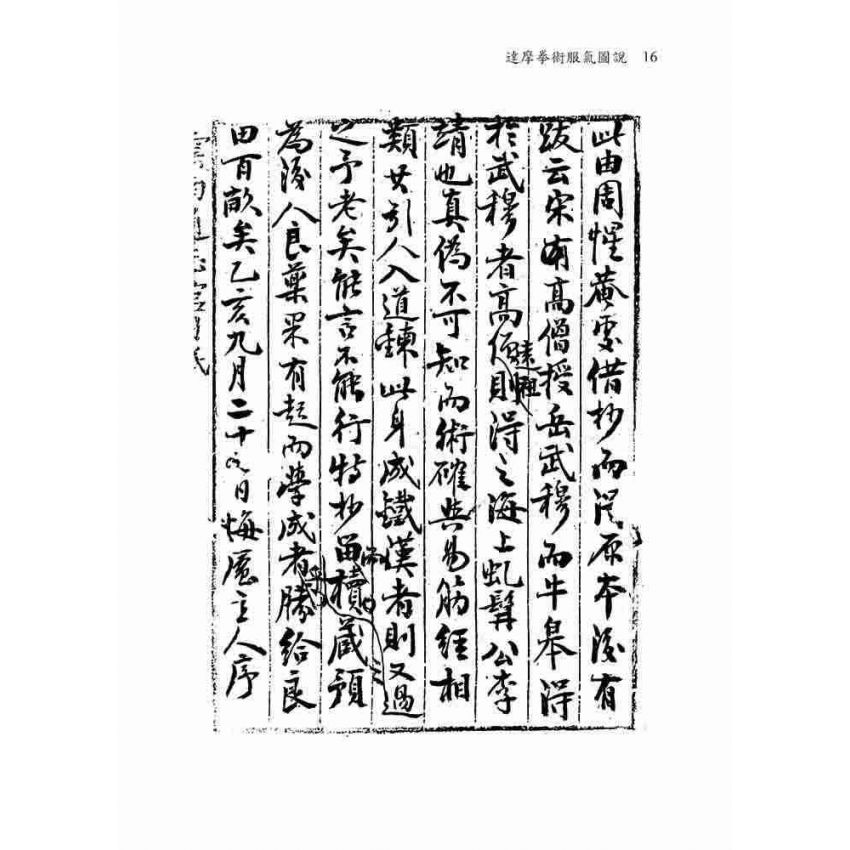 達摩拳術服氣圖說 16
此由周惺菴處借抄而淂原本後有
跋云宋有高僧授岳武穆而牛皋淂
於武穆者高僧則淂之海上虬髯公李
達祖
靖也真偽不可知而術確與易筋經相
類其引人入道鍊此身成鐵漢者則又過
之予老矣能言不能行特抄留櫝藏預
為後人良藥果有起而學成者勝給良
田百畝矣乙亥九月二十九日悔廬主人序